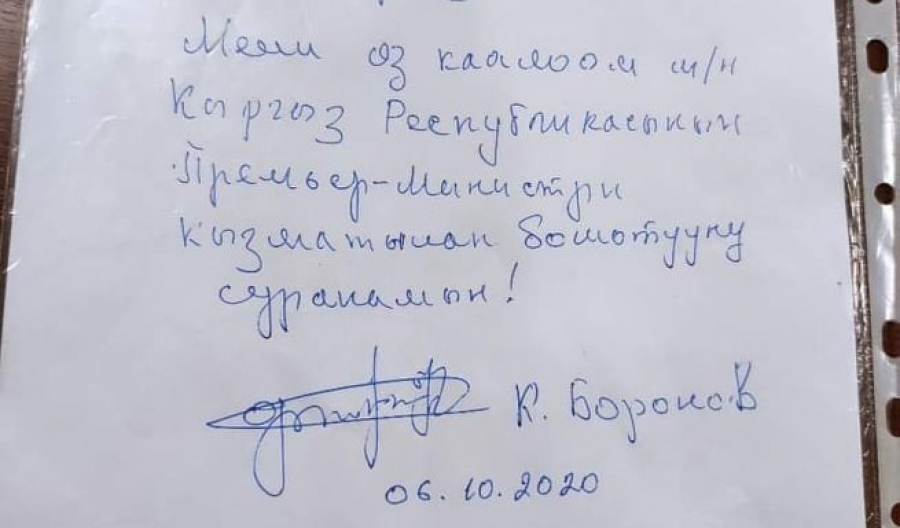 Мени өз каалоом м/н
Кыргыз Республикасынын
Премьер-Министри
кызматынан бошотууну
суранамын!
К. Боронов
06.10.2020